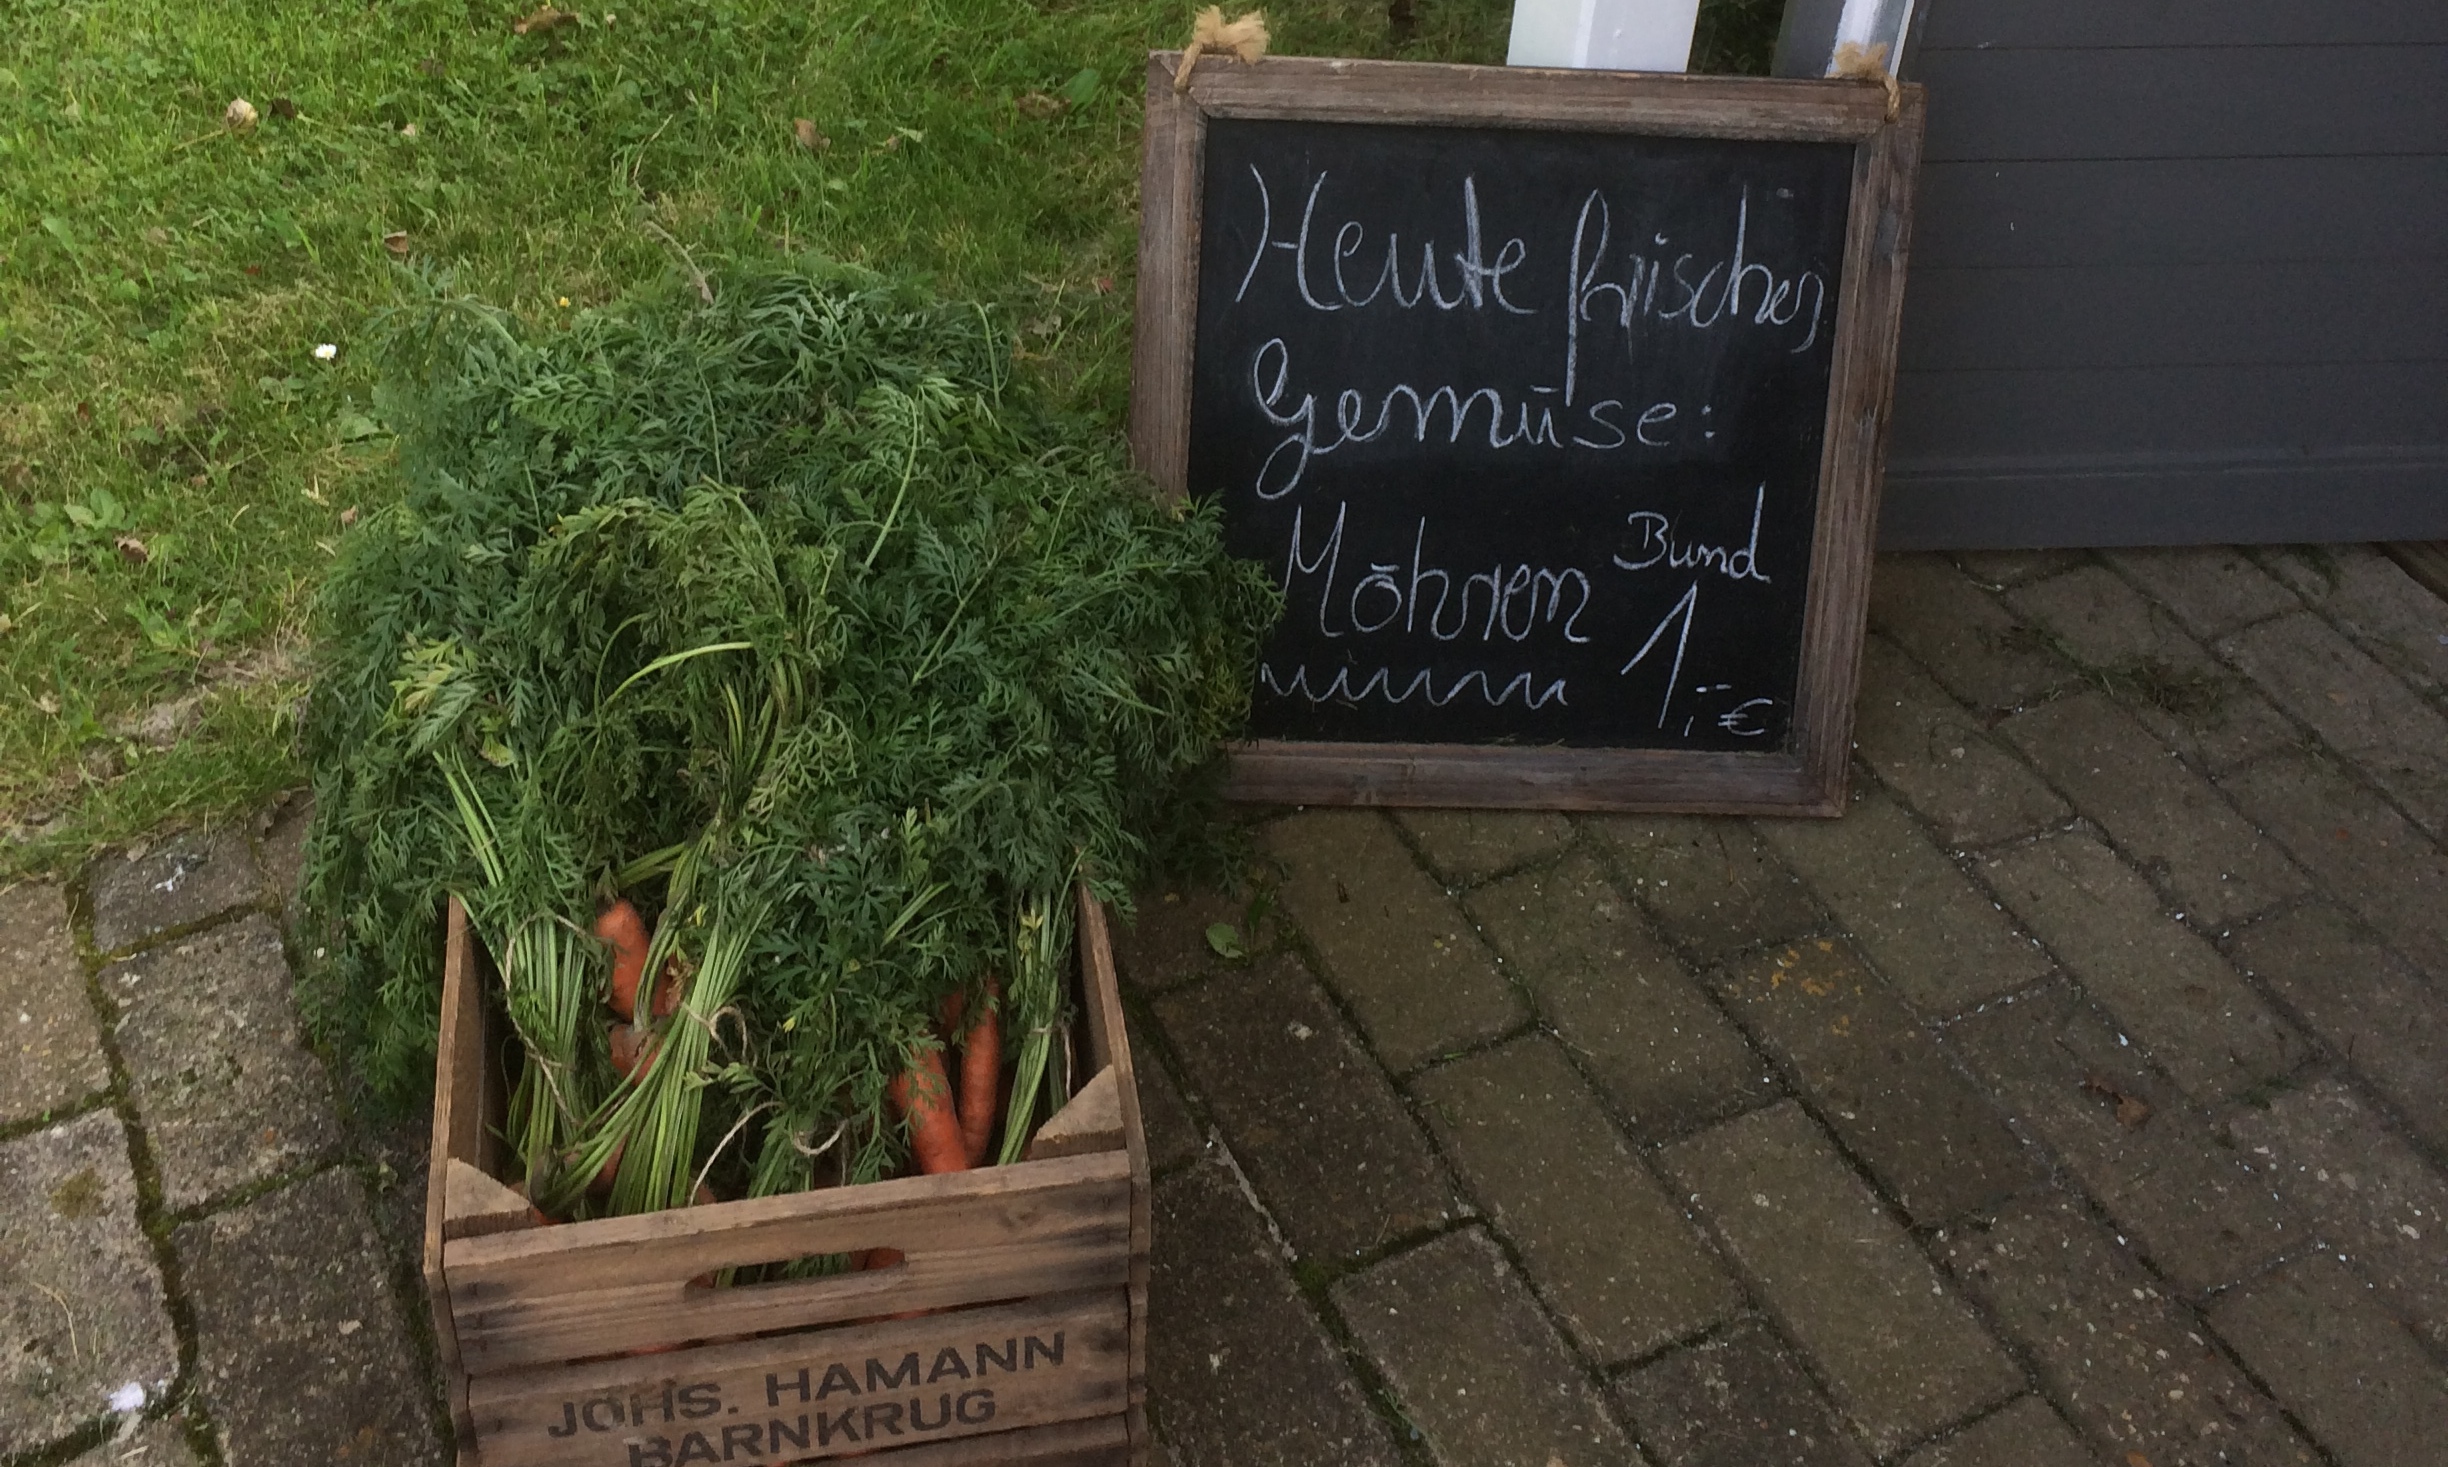 Heute frisches
Gemüse:
Möhren Bund
1,-€
JOHS. HAMANN
BARNKRUG